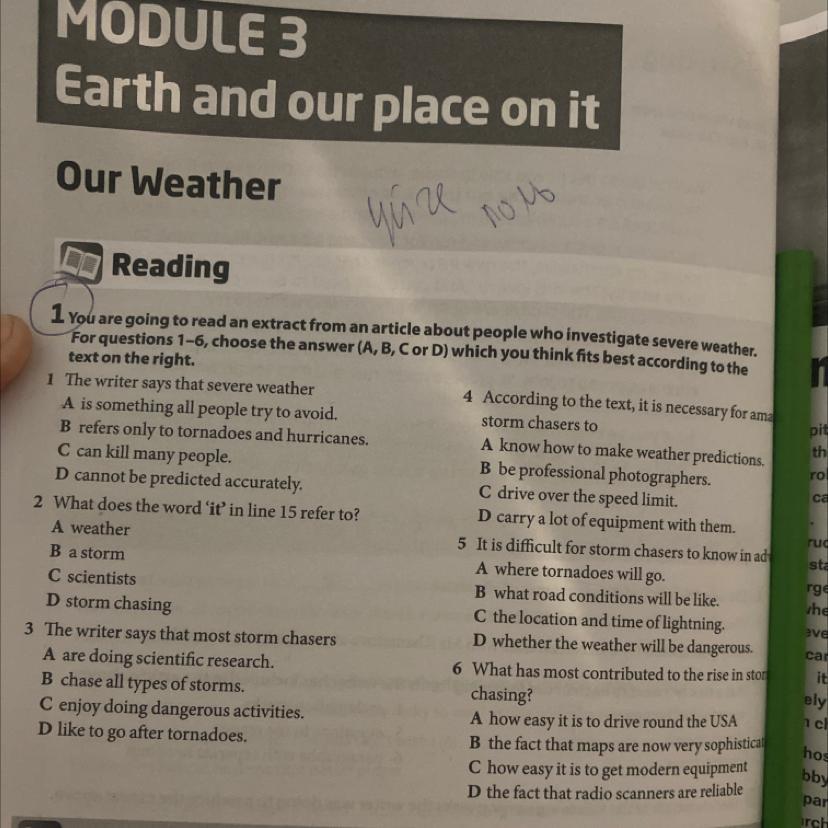 MODULE 3
Earth and our place on it
Our Weather
Reading
1 You are going to read an extract from an article about people who investigate severe weather.
For questions 1–6, choose the answer (A, B, C or D) which you think fits best according to the
text on the right.
1 The writer says that severe weather
A is something all people try to avoid.
B refers only to tornadoes and hurricanes.
C can kill many people.
D cannot be predicted accurately.
2 What does the word ‘it’ in line 15 refer to?
A weather
B a storm
C scientists
D storm chasing
3 The writer says that most storm chasers
A are doing scientific research.
B chase all types of storms.
C enjoy doing dangerous activities.
D like to go after tornadoes.
4 According to the text, it is necessary for ama
storm chasers to
A know how to make weather predictions.
B be professional photographers.
C drive over the speed limit.
D carry a lot of equipment with them.
5 It is difficult for storm chasers to know in adv
A where tornadoes will go.
B what road conditions will be like.
C the location and time of lightning.
D whether the weather will be dangerous.
6 What has most contributed to the rise in stor
chasing?
A how easy it is to drive round the USA
B the fact that maps are now very sophisticat
C how easy it is to get modern equipment
D the fact that radio scanners are reliable